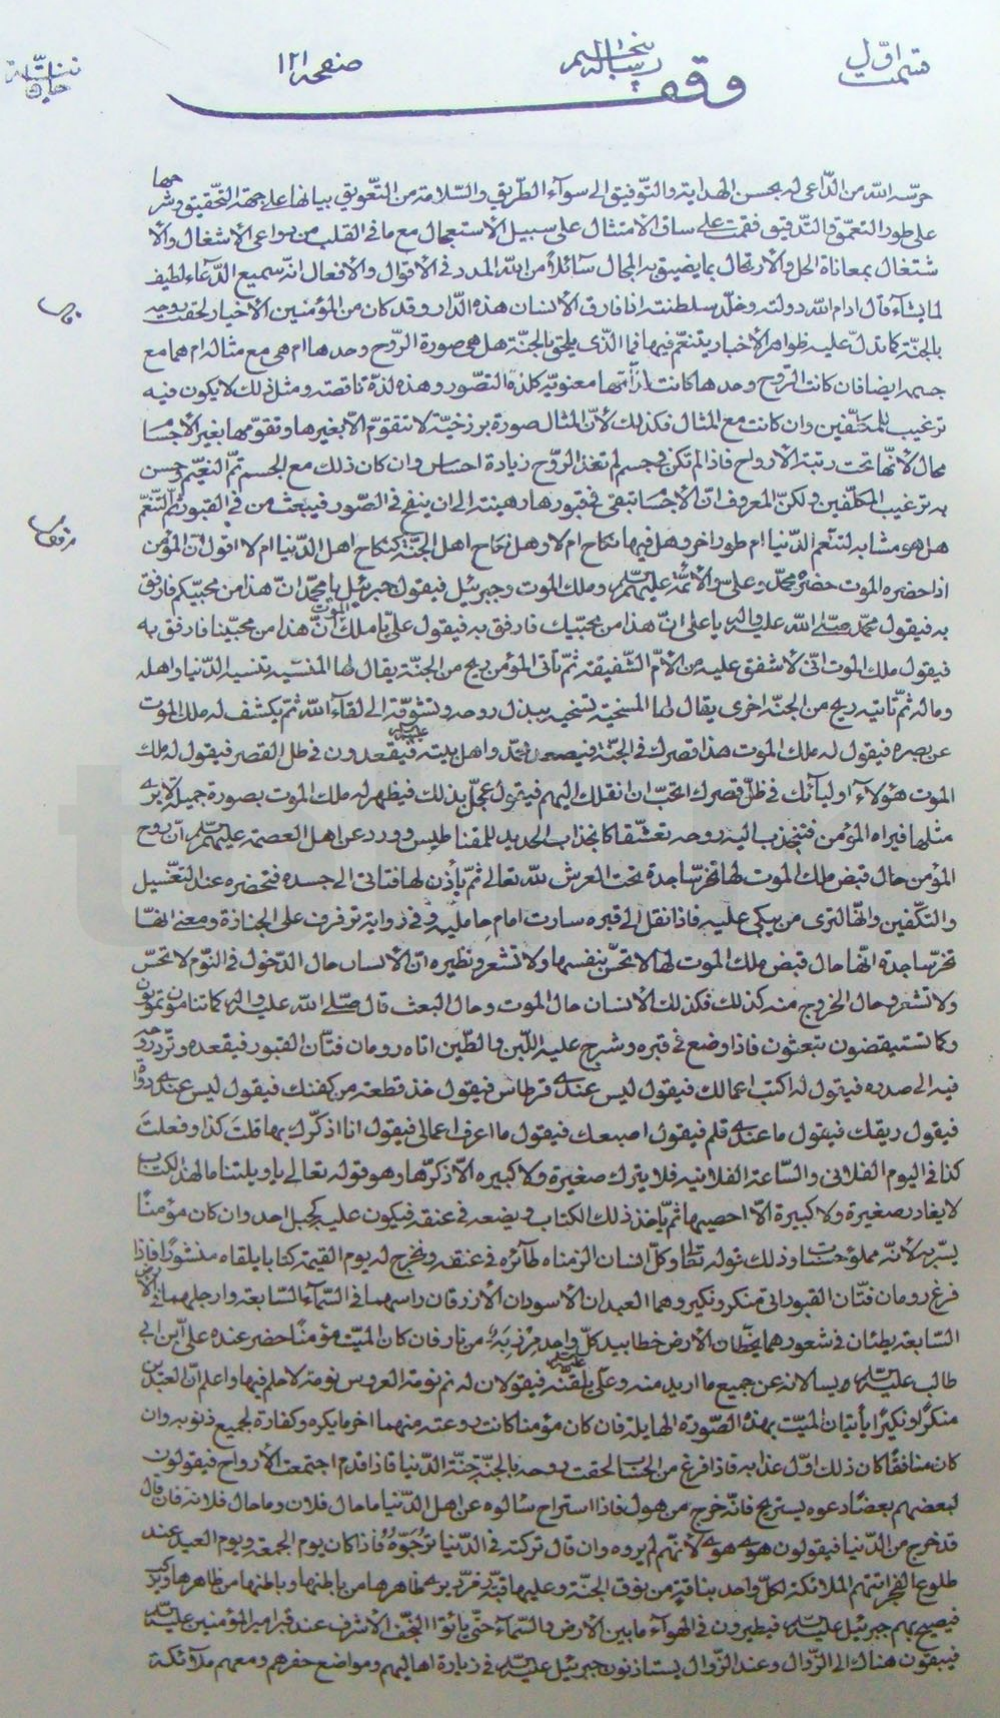 قسمت اوّل
رسالة
صفحه ۱۲۱
وقف
حرّسه اللّه من الدّاعی له بحسن الهدایة والتّوفیق الی سوآء الطّریق والسّلامة من التّعویق بیانها علی جهة التّحقیق وشرحها
علی طور التعمّق والتّدقیق فقمت علی ساق الامتثال علی سبیل الاستعجال مع ما فی القلب من دواعی الاشغال والا
شتغال بمعاناة الحلّ والارتحال بما یضیق به المجال سائلاً من اللّه المدد فی الاقوال والافعال انّه سمیع الدّعاء لطیف
لما یشآء قال ادام اللّه دولته وخلّد سلطنته اذا فارق الانسان هذه الدّار وقد کان من المؤمنین الاخیار لحقت روحه
بالجنّة کما تدلّ علیه ظواهر الاخبار یتنعّم فیها فما الّذی یلحق بالجنّة هل هی صورة الرّوح وحدها ام هی مع مثاله ام هما مع
جسمه ایضا فان کانت الرّوح وحدها کانت لذّاتها معنویّة کلذّة التصّور وهذه لذّة ناقصة ومثل ذلک لا یکون فیه
ترغیب للمکلّفین وان کانت مع المثال فکذلک لانّ المثال صورة برزخیّة لا تتقوّم الّا بغیرها وتقوّمها بغیر الاجسا
محال لانّها تحت رتبة الارواح فاذا لم تکن فی جسم لم تغذ الرّوح زیادة احساس وان کان ذلک مع الجسم تمّ النعیّم وحسن
به ترغیب المکلّفین ولکنّ المعروف انّ الاجسا تبقی فی قبورها رهینة الی ان ینفخ فی الصّور فیبعث من فی القبور ثمّ التّنعّم
هل هو مشابه لتنعّم الدّنیا ام طور اخر وهل فیها نکاح ام لا وهل نکاح اهل الجنّة کنکاح اهل الدّنیا ام لا اقول انّ المؤمن
اذا حضره الموت حضره محمّد وعلیّ والائمّة علیهم السّلام وملک الموت وجبرئیل فیقول جبرئیل یا محمّد انّ هذا من محبّیکم فارفق
به فیقول محمّد صلّی اللّه علیه واله یا علی انّ هذا من محبّیک فارفق به فیقول علیّ یا ملک الموت انّ هذا من محبّینا فارفق به
فیقول ملک الموت انّی لاشفق علیه من الامّ الشّفیقة ثمّ تأتی المؤمن ریح من الجنّة یقال لها المنسیة تنسیه الدّنیا واهله
وماله ثمّ تأتیه ریح من الجنّة اخری یقال لها المسخیة تسخیه ببذل روحه وتشوّقه الی لقآء اللّه ثمّ یکشف له ملک الموت
عن بصره فیقول له ملک الموت هذا قصرک فی الجنّة محمّد واهل بیته علیهم السلام فیقعدون فی ظل القصر فیقول له ملک
الموت هؤلآء اولیآئک فی ظلّ قصرک اتحبّ ان انقلک الیهم فیقول عجّل بذلک فیظهر له ملک الموت بصورة جمیلة لا یری
مثلها فیراه المؤمن فتنجذب الیه روحه تعشّقا کما ینجذب الحدید للمقناطیس وورد عن اهل العصمة علیهم السّلام انّ روح
المؤمن حال قبض ملک الموت لها تخرّ ساجدة تحت العرش للّه تعالی ثمّ یأذن لها فتاتی الی جسده فتحضره عند التّغسیل
والتکّفین وانّها لتری من یبکی علیه فاذا نقل الی قبره سارت امام حاملیه وفی روایة ترفرف علی الجنازة ومعنی انّها
تخرّ ساجدة انّها حال قبض ملک الموت لها لا تحسّ بنفسها ولا تشعر ونظیره انّ الانسان حال الدّخول فی النّوم لا تحسّ
ولا تشعر وحال الخروج منه کذلک فکذلک الانسان حال الموت وحال البعث قال صلّی اللّه علیه واله کما تنامون تموتون
وکما تستیقضون تبعثون فاذا وضع فی قبره وشرج علیه اللّبن والطّین اتاه رومان فتّان القبور فیقعده وتردّ روحه
فیه الی صدره فیقول له اکتب اعمالک فیقول لیس عندی قرطاس فیقول خذ قطعة من کفنک فیقول لیس عندی دواة
فیقول ریقک فیقول ما عندی قلم فیقول اصبعک فیقول ما اعرف اعمالی فیقول انا اذکّرک بها قلت کذا وفعلت
کذا فی الیوم الفلانی والسّاعة الفلانیه فلا یترک صغیرة ولا کبیره الّا ذکرّها وهو قوله تعالی یا ویلتنا ما لهذا الکتاب
لا یغادر صغیرة ولا کبیرة الّا احصیها ثمّ یأخذ ذلک الکتاب ویضعه فی عنقه فیکون علیه کجبل احد وان کان مؤمنًا
یسرّ به لانّه مملؤ حسنات وذلک قوله تعالی وکلّ انسان الزمناه طآئره فی عنقه ونخرج له یوم القیمة کتابا یلقاه منشورًا فاذا
فرغ رومان فتّان القبور اتی منکر ونکیر وهما العبدان الاسودان الازرقان راسهما فی السّمآء السّابعة وارجلهما فی الارض
السّابعة یطئان فی شعورهما یخطّان الارض خطا بید کلّ واحد مرزبة من نار فان کان المیّت مؤمنًا حضر عنده علیّ ابن ابی
طالب علیه السّلام ویسالانه عن جمیع ما ارید منه وعلیّ علیه السلام یلقّنه فیقولان له نم نومة العروس نومة لا حلم فیها واعلم انّ العبدین
منکرًا ونکیرًا یأتیان المیّت بهذه الصّورة الهایلة فان کان مؤمنا کانت روعته منهما اخر ما یکره وکفارة لجمیع ذنوبه وان
کان منافقًا کان ذلک اوّل عذابه فاذا فرغ من الحساب الحقت روحه بالجنّة جنّة الدّنیا فاذا قدم اجتمعت الارواح فیقولون
لبعضهم بعضًا دعوه یستریح فانّه خرج من هول فاذا استراح سألوه عن اهل الدّنیا ما حال فلان وما حال فلانة فان قال
قد خرج من الدّنیا فیقولون هوی هوی لانّهم لم یروه وان قال ترکته فی الدّنیا ترجّوه فاذا کان یوم الجمعة ویوم العید عند
طلوع الفجر اتتهم الملائکة لکلّ واحد بناقة من نوق الجنّة وعلیها قبّة یری ظاهرها من باطنها وباطنها من ظاهرها
فیصیح بهم جبرئیل علیه السّلام فیطیرون فی الهوآء ما بین الارض والسّمآء حتّی یاتوا النّجف الاشرف عند قبر امیر المؤمنین علیه السّلام
فیبقون هناک الی الزّوال وعند الزّوال یستاذنون جبرئیل علیه السّلام فی زیارة اهالیهم ومواضع حفرهم ومعهم ملآئکة